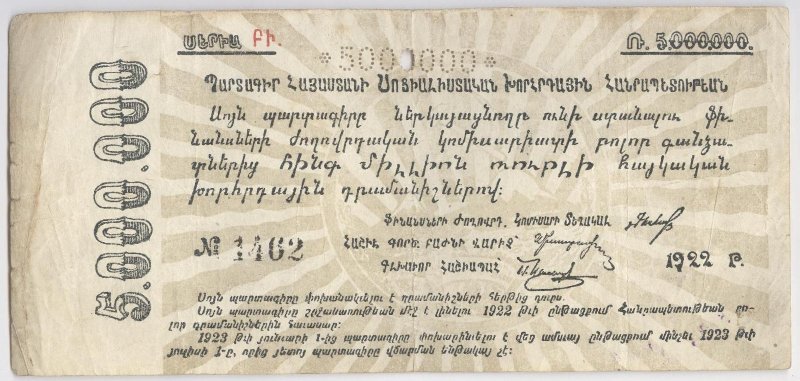 ՍԵՐԻԱ ԲԻ.
Ռ. 5.000.000.
*5000000*
5.000.000
ՊԱՐՏԱԳԻՐ ՀԱՅԱՍՏԱՆԻ ՍՈՑԻԱԼԻՍՏԱԿԱՆ ԽՈՐՀՐԴԱՅԻՆ ՀԱՆՐԱՊԵՏՈՒԹԵԱՆ
Սոյն պարտագիրը ներկայացնողը ունի ստանալու ֆի-
նանսների ժողովրդական կոմիսարիատի բոլոր գանձա-
րաններից ՀԻՆԳ ՄԻԼԼԻՈՆ ռուբլի հայկական
խորհրդային դրամանիշներով։
ՖԻՆԱՆՍՆԵՐԻ ԺՈՂՈՎՐԴ. ԿՈՄԻՍԱՐԻ ՏԵՂԱԿԱԼ
ՀԱՇԻՒ. ԳՈՐԾ. ԲԱԺՆԻ ՎԱՐԻՉ
№ 1462
ԳԼԽԱՒՈՐ ՀԱՇԻՒԱՊԱՀ
1922 Թ.
Սոյն պարտագիրը փոխանակելու է դրամանիշների հերթից դուրս.
Սոյն պարտագիրը շրջանառութեան մէջ է լինելու 1922 թւի ընթացքում Հանրապետութեան բո-
լոր դրամանիշներին հաւասար։
1923 թւի յունւարի 1-ից պարտագիրը փոխարինելու է մեց ամսայ ընթացքում մինչեւ 1923 թւի
յուլիսի 1-ը, որից յետոյ պարտագիրը վճարման ենթակայ չէ։